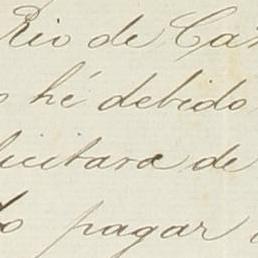 Rio de Ca
hé debido
licitara de
pagar